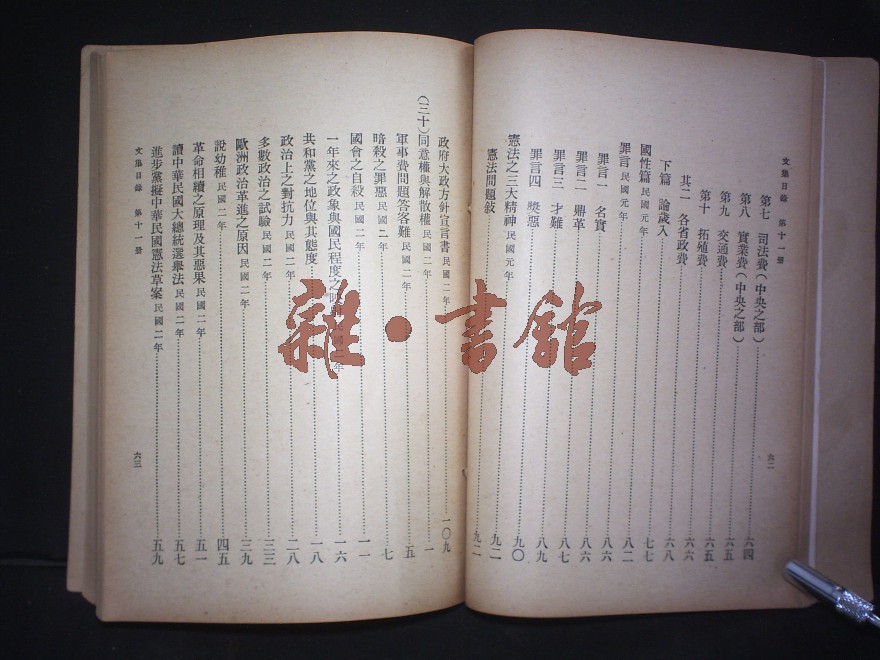 文集目錄　第十一册
第七　司法費(中央之部)……六四
第八　實業費(中央之部)……六五
第九　交通費……六五
第十　拓殖費……六六
其二　各省政費……六八
下篇　論歲入……七七
國性篇 民國元年……八二
罪言 民國元年……八六
罪言一　名實……八六
罪言二　鼎革……八七
罪言三　才難……八九
罪言四　獎惡……九〇
憲法之三大精神 民國元年……九二
憲法問題敍……九二
六二
政府大政方針宣言書 民國二年……一〇九
(三十)同意權與解散權 民國二年……一
軍事費問題答客難 民國二年……五
暗殺之罪惡 民國二年……七
國會之自殺 民國二年……一一
一年來之政象與國民程度之 年……一六
共和黨之地位與其態度……一八
政治上之對抗力 民國二年……二八
多數政治之試驗 民國二年……三三
歐洲政治革進之原因 民國二年……三九
說幼稚 民國二年……四五
革命相續之原理及其惡果 民國二年……五一
讀中華民國大總統選舉法 民國二年……五七
進步黨擬中華民國憲法草案 民國二年……五九
文集目錄　第十一册
六三
雜·書館